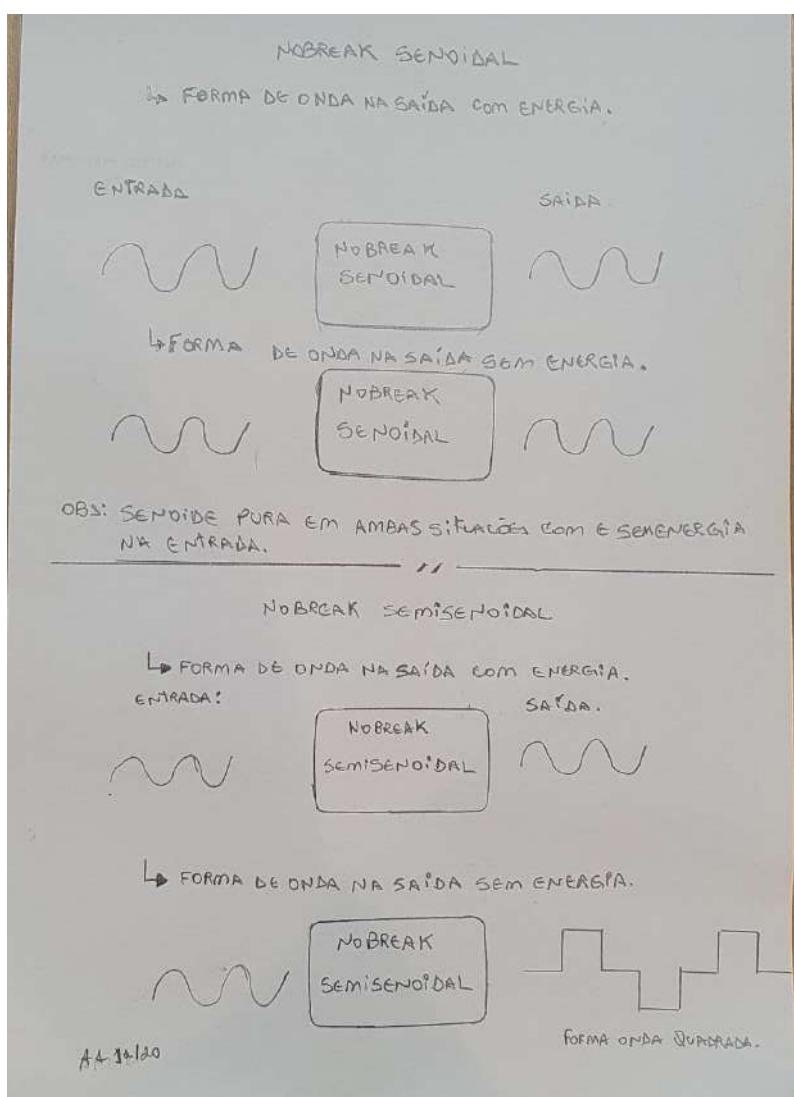 NOBREAK SENOIDAL
↳ FORMA DE ONDA NA SAÍDA COM ENERGIA.
ENTRADA
SAIDA
NOBREAK
SENOIDAL
↳ FORMA DE ONDA NA SAÍDA SEM ENERGIA.
NOBREAK
SENOIDAL
OBS: SENOIDE PURA EM AMBAS SITUAÇÕES COM E SEM ENERGIA
NA ENTRADA.
NOBREAK SEMISENOIDAL
↳ FORMA DE ONDA NA SAÍDA COM ENERGIA.
ENTRADA:
SAÍDA.
NOBREAK
SEMISENOIDAL
↳ FORMA DE ONDA NA SAÍDA SEM ENERGIA.
NOBREAK
SEMISENOIDAL
FORMA ONDA QUADRADA.